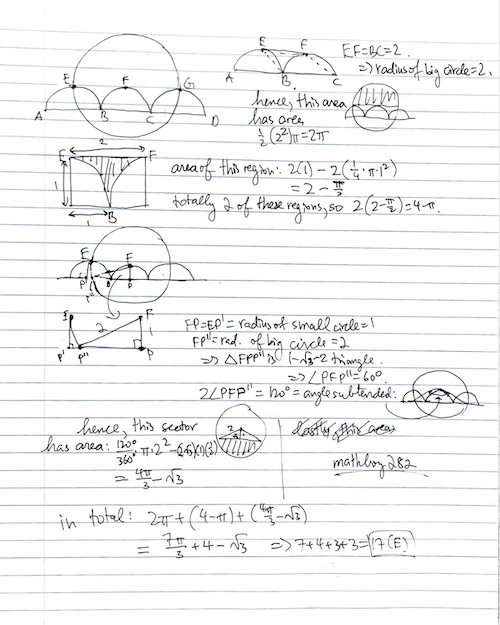 E F G
A B C D
E F
A B C
EF=BC=2.
⇒ radius of big circle=2.
hence, this area
has area
½(2²)π=2π
2
E F
1
1 B
area of this region: 2(1) - 2(¼·π·1²)
= 2 - π/2
totally 2 of these regions, so 2(2-π/2)=4-π.
E F
P' P'' P
E F
2 1
P' P'' P
FP=EP'=radius of small circle=1
FP''=rad. of big circle=2
⇒ △FPP'' is 1-√3-2 triangle.
⇒∠PFP''=60°
2∠PFP''=120°=angle subtended:
hence, this sector
has area: 120°/360°·π·2² -
= 4π/3 - √3
2
lastly, this area
mathboy282
in total: 2π+(4-π)+(4π/3-√3)
= 7π/3+4-√3 ⇒ 7+4+3+3=17(E)